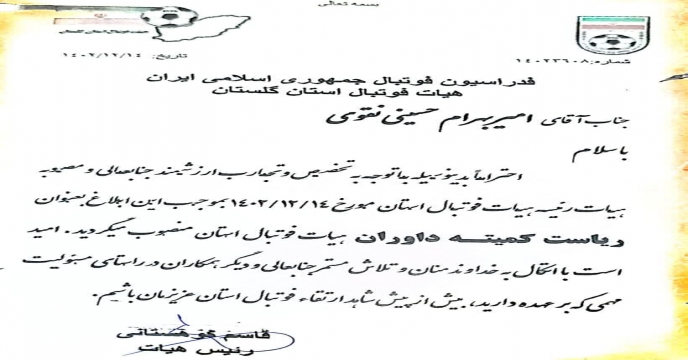 بسمه تعالی
تاریخ: ۱۴۰۲/۱۲/۱۴
شماره: ۱۴۰۲۳۶۰۸
فدراسیون فوتبال جمهوری اسلامی ایران
هیات فوتبال استان گلستان
جناب آقای امیر بهرام حسینی نقوی
با سلام
احتراماً بدینوسیله با توجه به تخصص و تجارب ارزشمند جنابعالی و مصوبه
هیات رئیسه هیات فوتبال استان مورخ ۱۴۰۲/۱۲/۱۴ بموجب این ابلاغ بعنوان
ریاست کمیته داوران هیات فوتبال استان منصوب میگردید. امید
است با اتکال به خداوند منان و تلاش مستمر جنابعالی و دیگر همکاران در راستای مسئولیت
مهمی که بر عهده دارید، بیش از پیش شاهد ارتقاء فوتبال استان عزیزمان باشیم.
قاسم کوهستانی
رئیس هیات